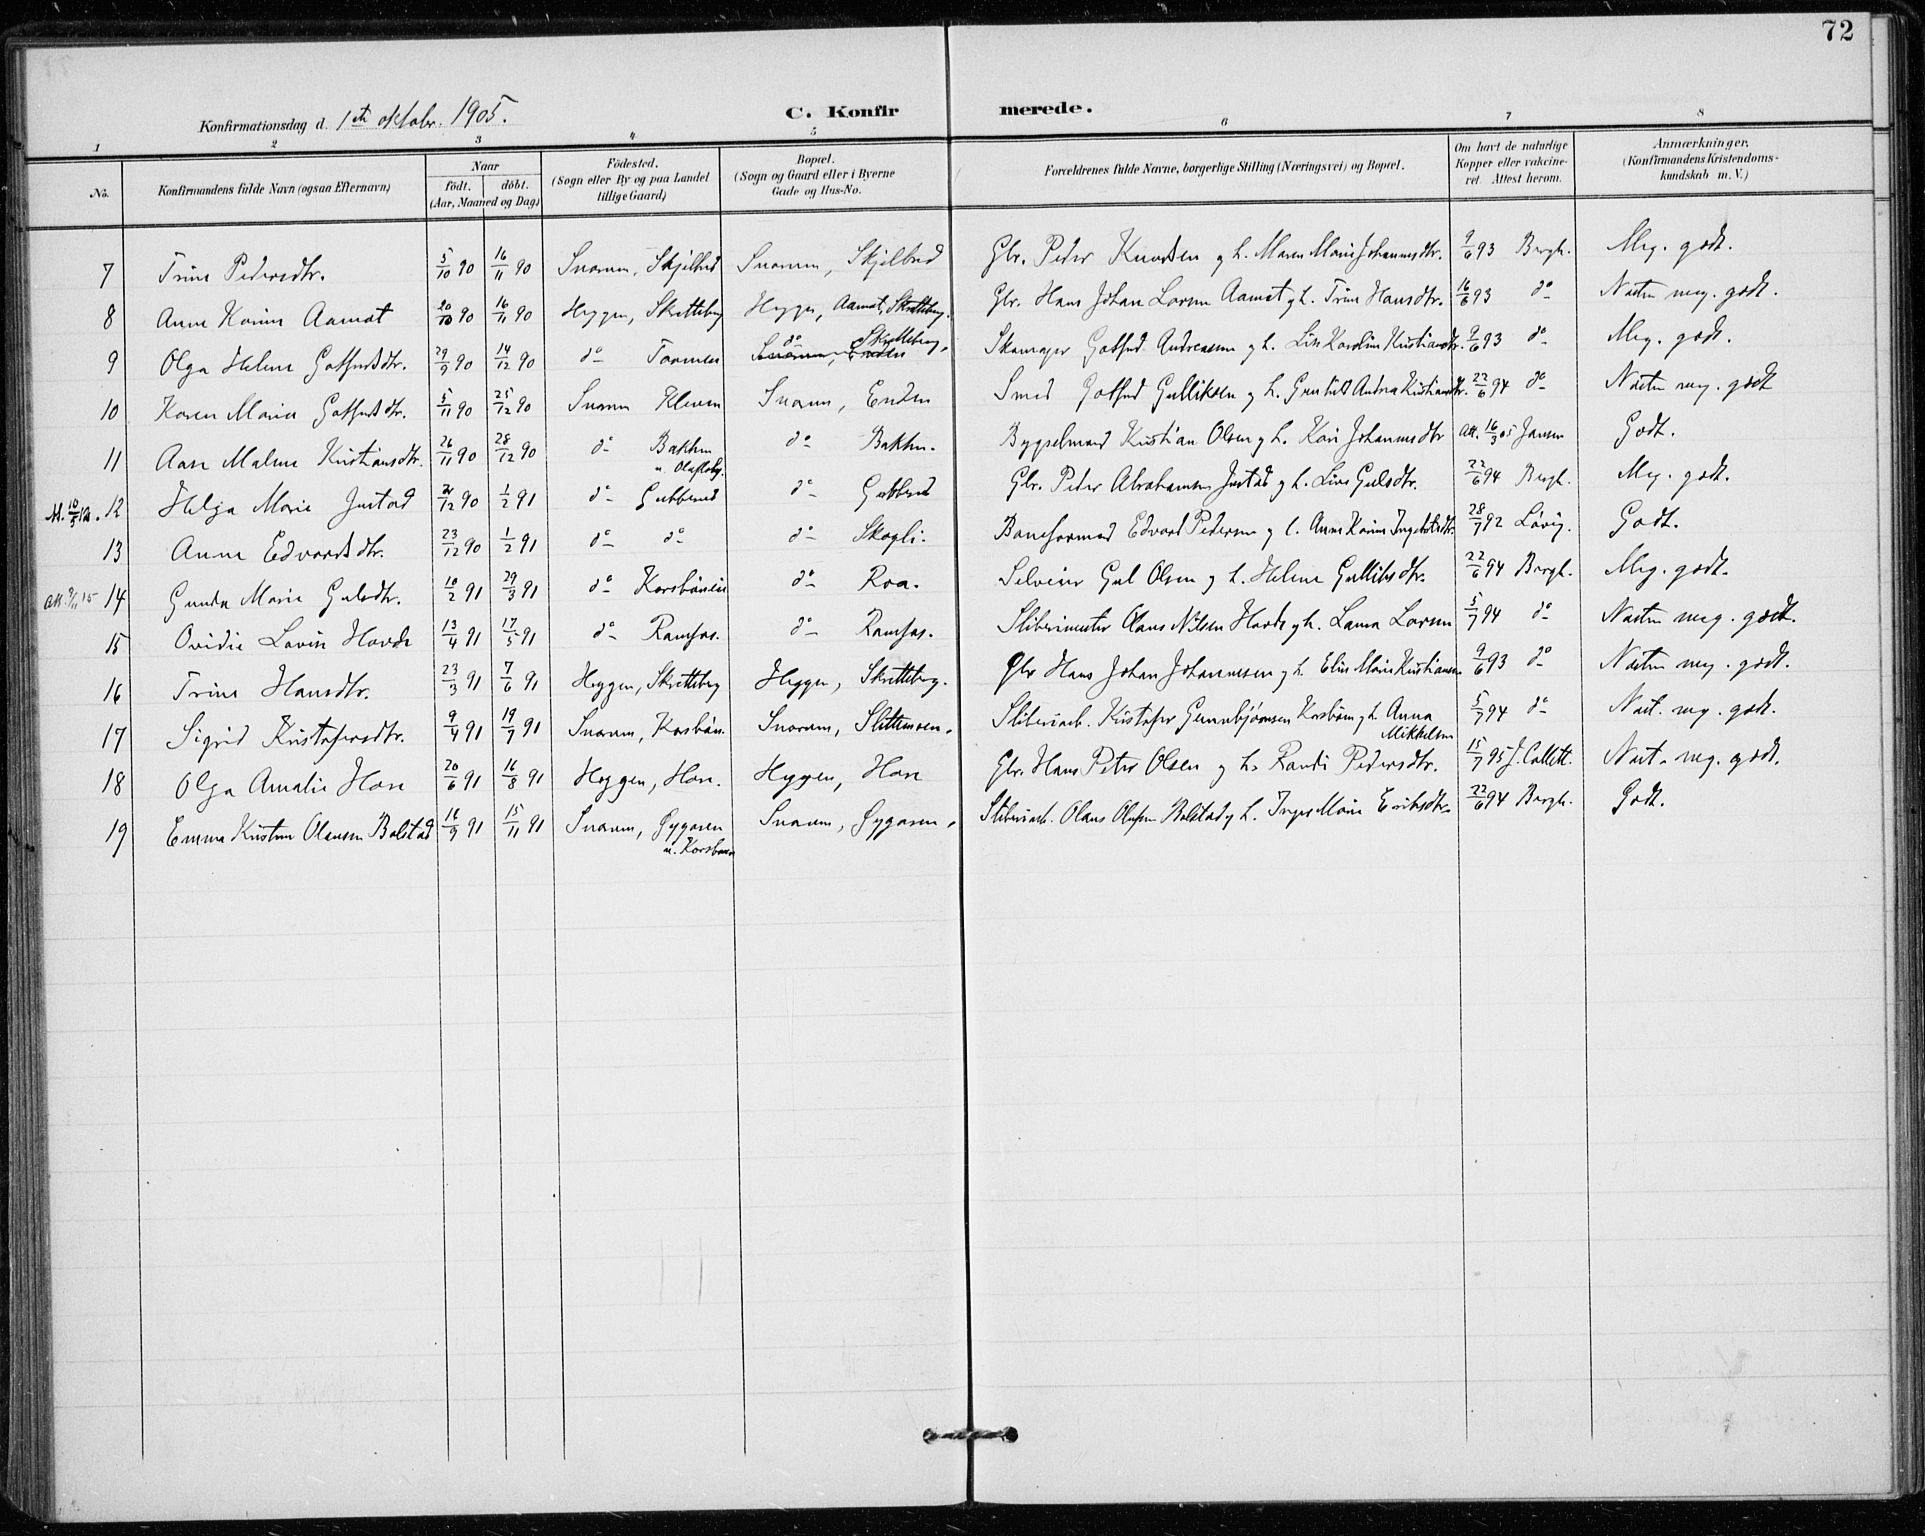 72
Konfirmationsdag d. 1ste oktobr. 1905.
C. Konfirmerede.
1 2 3 4 5 6 7 8
No. Konfirmandens fulde Navn (ogsaa Efternavn) Naar födt. döbt. (Aar, Maaned og Dag) Födested. (Sogn eller By og paa Landet tillige Gaard) Bopæl. (Sogn og Gaard eller i Byerne Gade og Hus-No. Forældrenes fulde Navne, borgerlige Stilling (Næringsvei) og Bopæl. Om havt de naturlige Kopper eller vakcineret. Attest herom. Anmærkninger. (Konfirmandens Kristendomskundskab m. V.)
7 Trine Pedersdtr. 5/10 90 16/11 90 Snarum, Skjelbred Snarum, Skjelbred Gbr. Peder Knudsen og h. Maren Marie Johannesdtr. 9/6 93 Bergh. Meg. godt.
8 Anne Karine Aamot 20/10 90 16/11 90 Heggen, Skretteberg Heggen, Aamot, Skretteberg. Gbr. Hans Johan Larsen Aamot og h. Trine Hansdtr. 16/6 93 do Næsten meg. godt.
9 Olga Helene Gotfredsdtr. 29/9 90 14/12 90 do Tormoen Snarum, Enden do Skretteberg. Skomager Gotfred Andreassen og h. Lise Karoline Kristiansdtr. 9/6 93 do Meg. godt.
10 Karen Marie Gotfredsdtr. 5/11 90 25/12 90 Snarum Kleven Snarum, Enden Smed Gotfred Gulliksen og h. Gunhild Andrea Kristiansdtr. 22/6 94 do Næsten meg. godt
11 Aase Maline Kristiansdtr. 26/11 90 28/12 90 do Bakken u. Olafsby. do Bakken. Bygselmand Kristian Olsen og h. Kari Johannesdtr Att. 16/3 05 Jansen Godt.
Att. 10/5 12. 12 Helga Marie Justad 21/12 90 1/2 91 do Gubberud do Gubberud Gbr. Peder Abrahamsen Justad og h. Live Gulsdtr. 22/6 94 Bergh. Meg. godt.
13 Anna Edvardsdtr. 23/12 90 1/2 91 do do do Skogli. Baneformand Edvard Pedersen og h. Anne Karine Ingebretsdtr. 28/7 92 Lövig. Godt.
Att. 9/11 15 14 Gunda Marie Gulsdtr. 10/2 91 29/3 91 do Korsbönen do Roa. Selveier Gul Olsen og h. Helene Gulliksdtr. 22/6 94 Bergh. Meg. godt.
15 Ovidie Lovise Hovde 13/4 91 17/5 91 do Ramfos. do Ramfos. Slibemester Olaus Nilsen Hovde og h. Laura Larsen 5/7 94 do Næsten meg. godt.
16 Trine Hansdtr. 23/3 91 7/6 91 Heggen, Skretteberg Heggen, Skretteberg. Gbr Hans Johan Johannessen og h Eline Marie Kristiansen 9/6 93 do Næsten meg. godt.
17 Sigrid Kristofersdtr. 9/4 91 19/7 91 Snarum, Korsbön. Snarum, Slettemoen. Sliberiarb. Kristofer Gunnbjørnsen Korsbøen og h Anna Mikkelsen 5/7 94 do Næst. meg. godt.
18 Olga Amalie Hoen 20/6 91 16/8 91 Heggen, Hoen. Heggen, Hoen Gbr. Hans Peter Olsen og h. Randi Pedersdtr. 15/7 95 J. Collett. Næst. meg. godt.
19 Emma Kristine Olausen Bolstad 16/9 91 15/11 91 Snarum, Gygaren u. Korsbøen Snarum, Gygaren. Sliberiarb. Olaus Olafsen Bolstad og h. Inger Marie Eriksdtr. 22/6 94 Bergh. Godt.